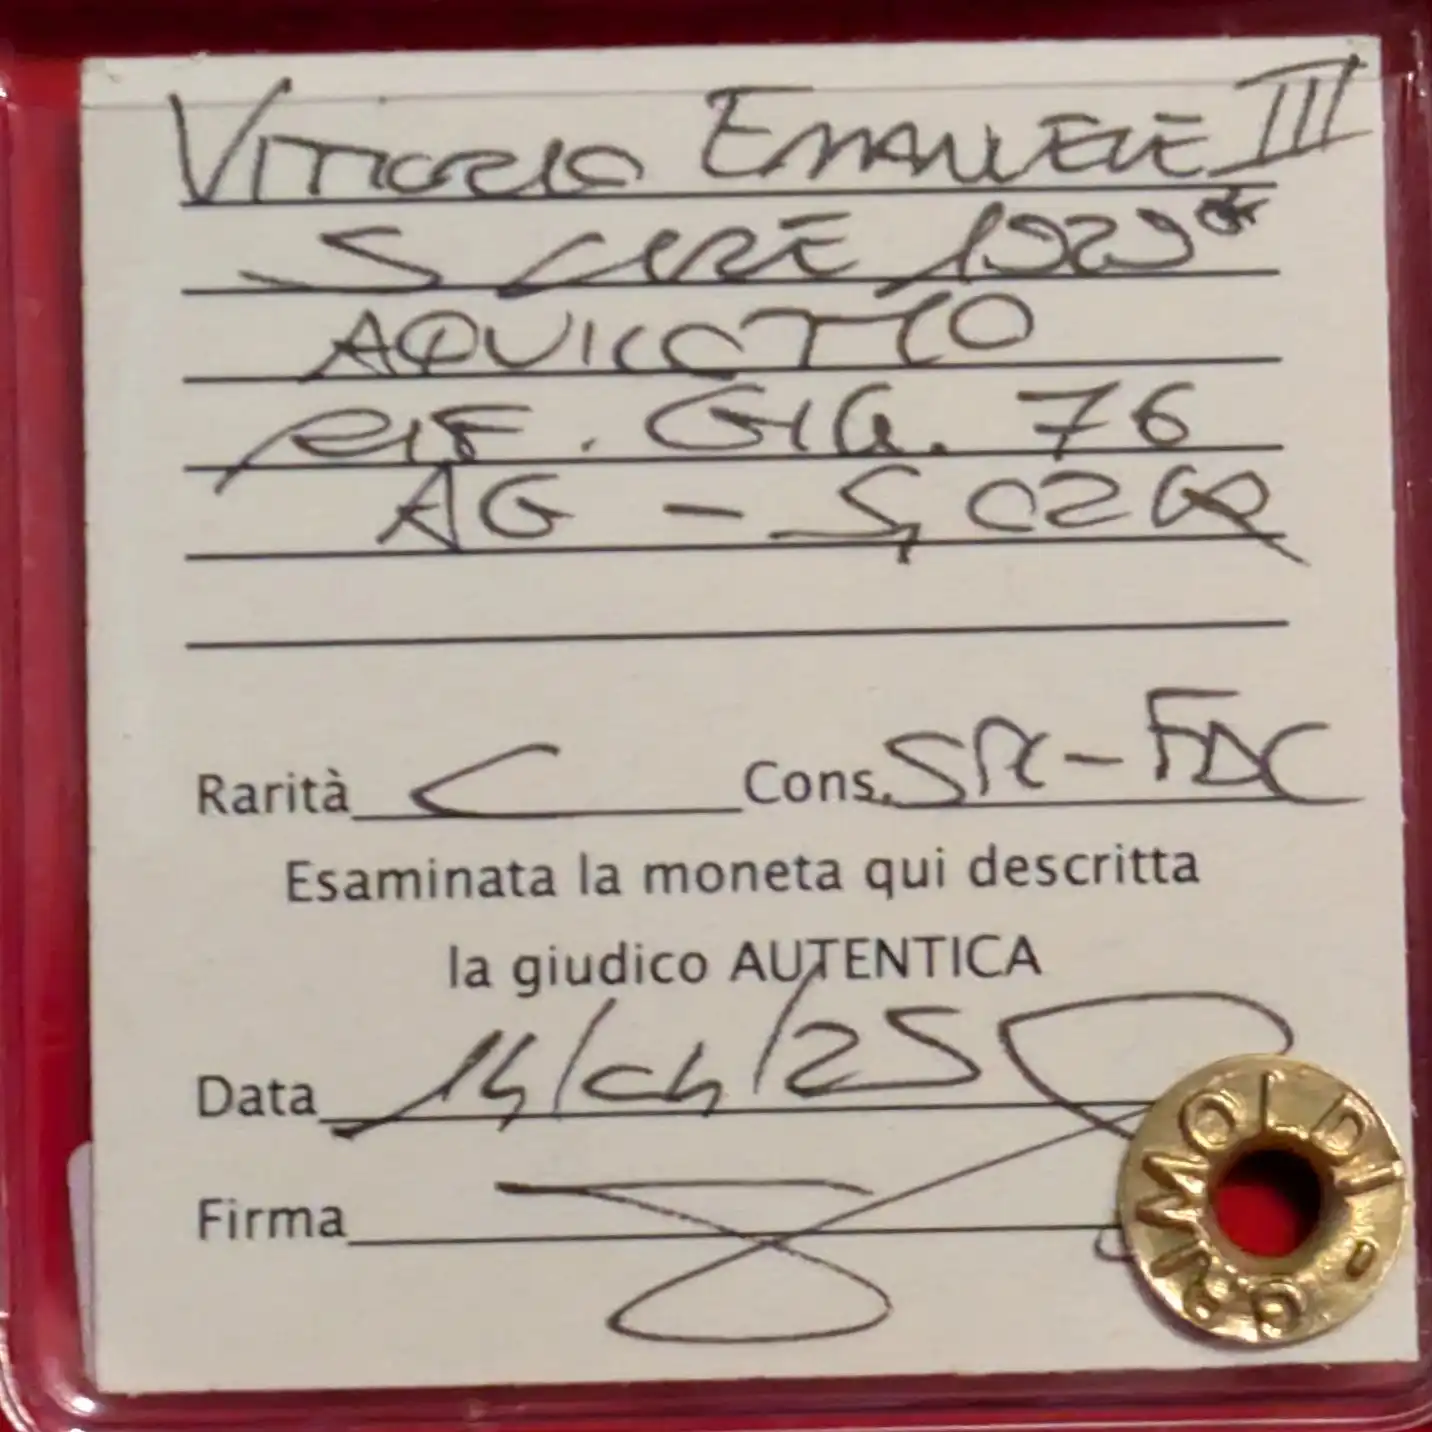 VITTORIO EMANUELE III
5 LIRE 1929*
AQUILOTTO
RIF. GIG. 76
AG - 5,02 GR
Rarità C Cons. SPL-FDC
Esaminata la moneta qui descritta
la giudico AUTENTICA
Data 14/04/25
Firma
GRIMOLDI